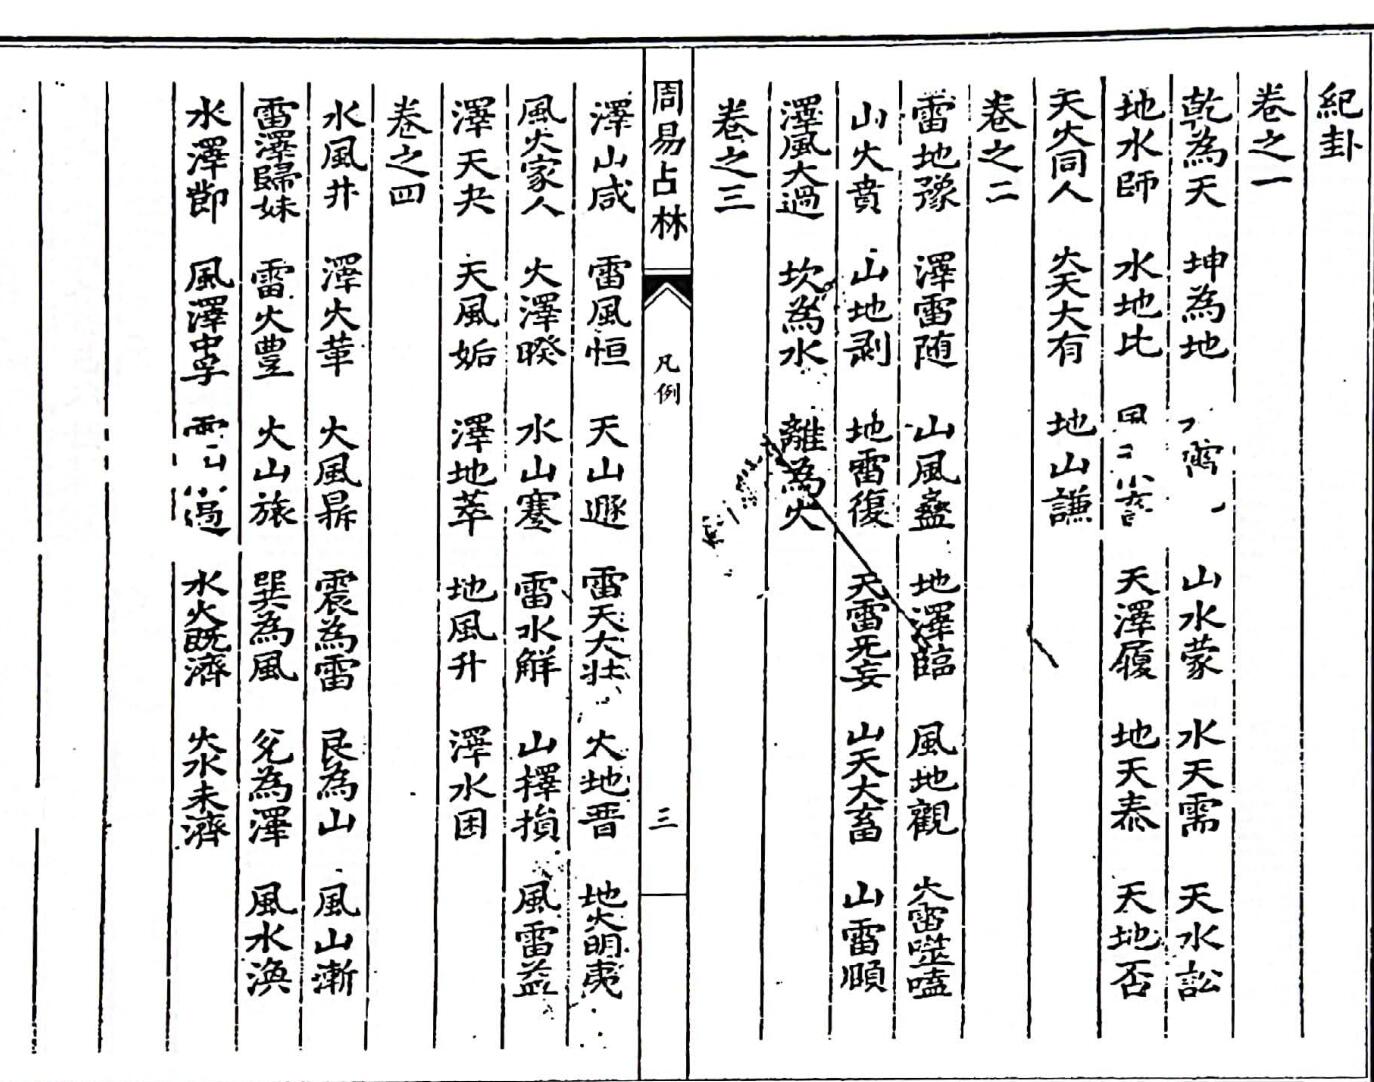 紀卦
卷之一
乾為天 坤為地 山水蒙 水天需 天水訟
地水師 水地比 天澤履 地天泰 天地否
天火同人 火天大有 地山謙
卷之二
雷地豫 澤雷随 山風蠱 地澤臨 風地觀 火雷噬嗑
山火賁 山地剥 地雷復 天雷无妄 山天大畜 山雷頤
澤風大過 坎為水 離為火
卷之三
周易占林
凡例
三
澤山咸 雷風恒 天山遯 雷天大壯 火地晋 地火明夷
風火家人 火澤睽 水山蹇 雷水解 山擇損 風雷益
澤天夬 天風姤 澤地萃 地風升 澤水困
卷之四
水風井 澤火革 火風鼎 震為雷 艮為山 風山漸
雷澤歸妹 雷火豊 火山旅 巽為風 兌為澤 風水渙
水澤節 風澤中孚 過 水火既濟 火水未濟